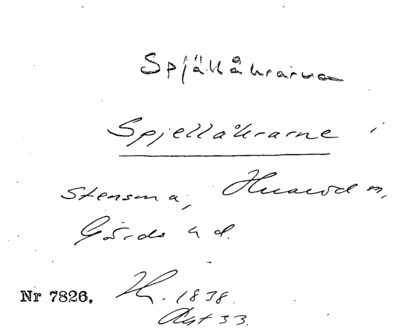 Spjällåkrarna
Spjellåkrarne i
Stensma, Huaröd sn,
Gärds hd.
Nr 7826. 1838.
Akt 33.